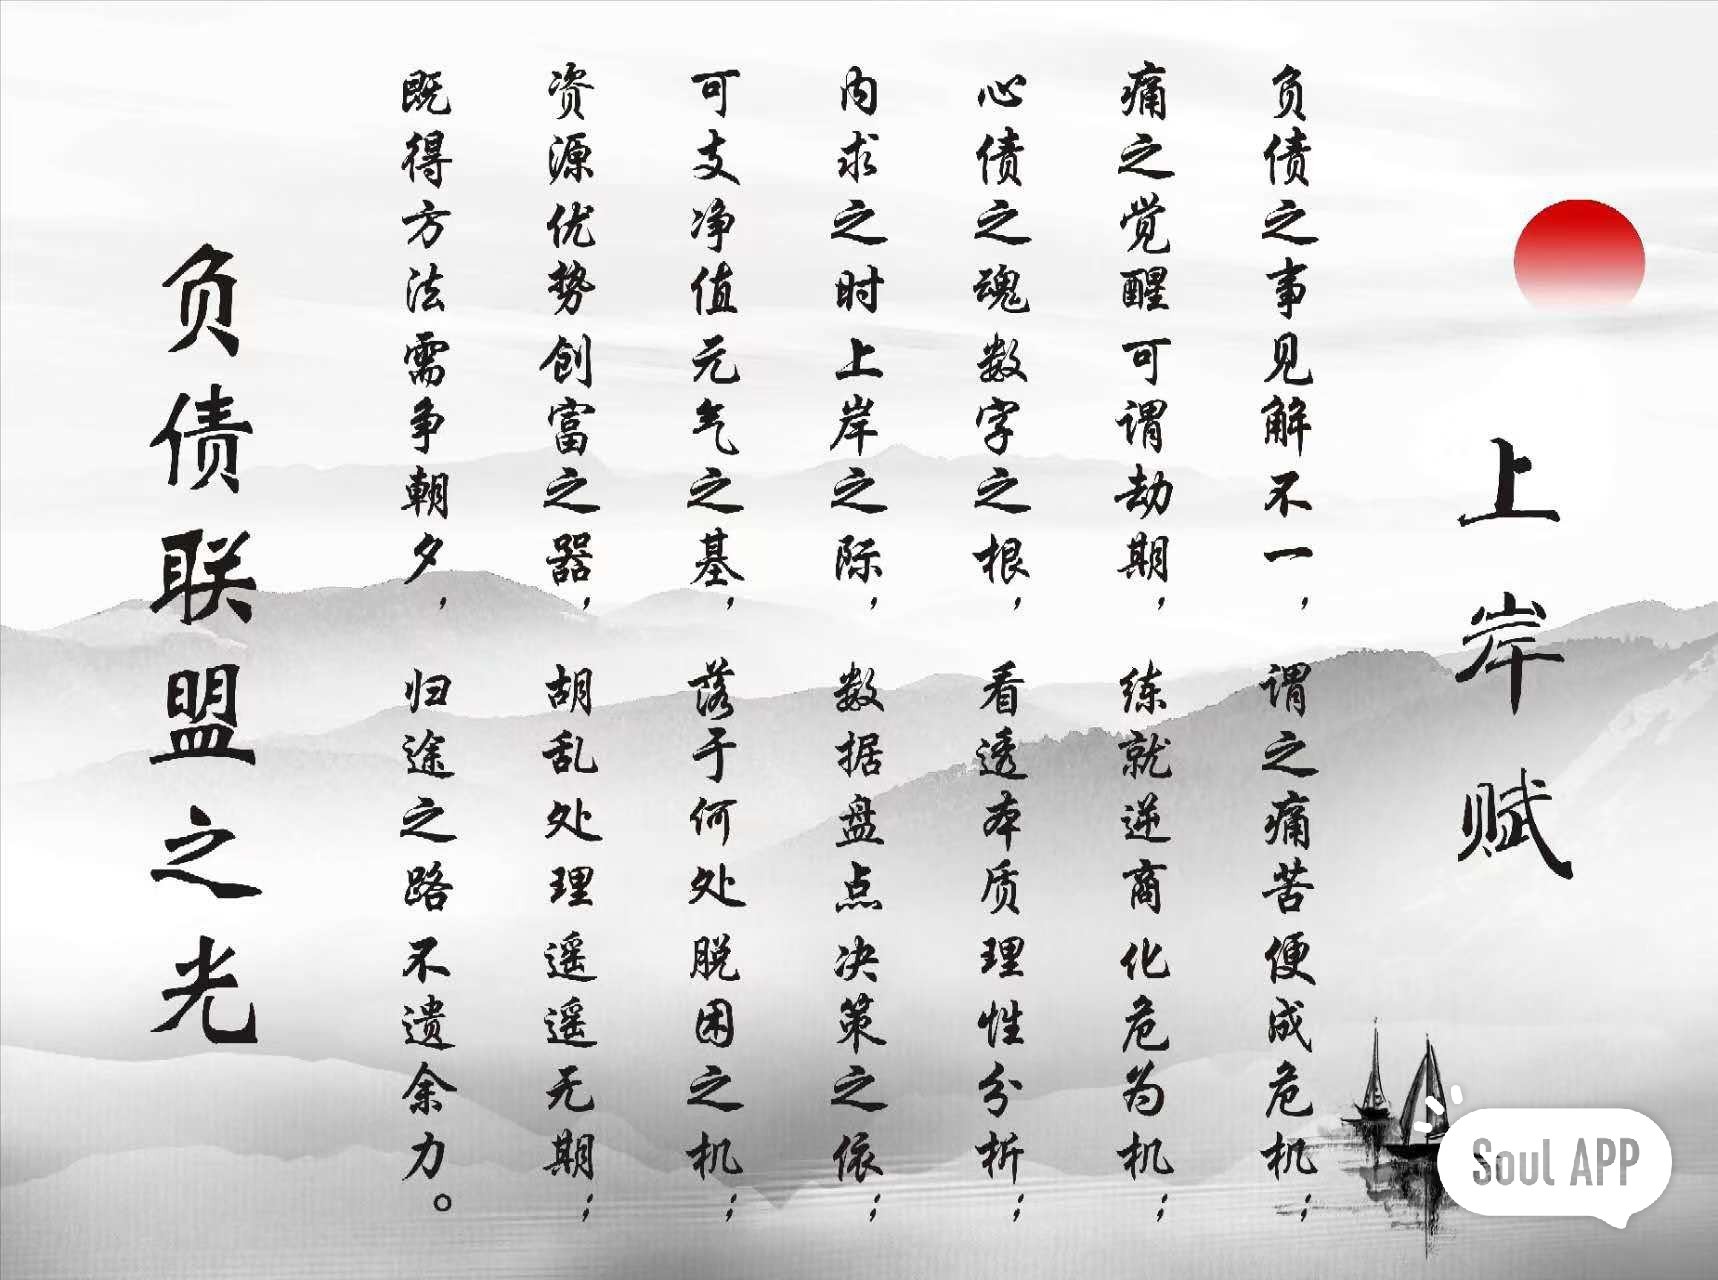 上岸赋
负债之事见解不一，谓之痛苦便成危机；
痛之觉醒可谓劫期，练就逆商化危为机；
心债之魂数字之根，看透本质理性分析；
内求之时上岸之际，数据盘点决策之依；
可支净值元气之基，落于何处脱困之机；
资源优势创富之器，胡乱处理遥遥无期；
既得方法需争朝夕，归途之路不遗余力。
负债联盟之光
Soul APP